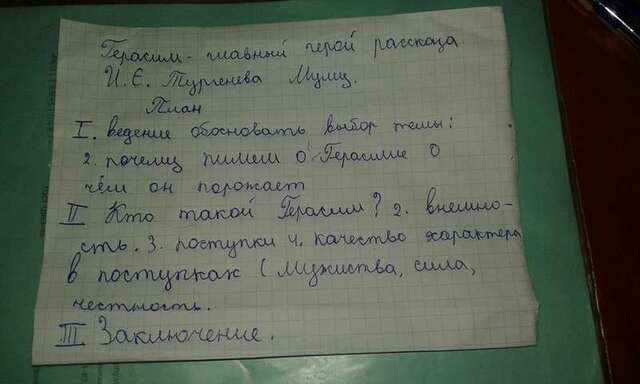 Герасим - главный герой рассказа
И. С. Тургенева Муму.
План
I. ведение обосновать выбор темы:
2. почему пишем о Герасиме о
чём он порожает
II Кто такой Герасим? 2. внешно-
сть. 3. поступки 4. качество характера
в поступках (мужиства, сила,
честность.
III Заключение.